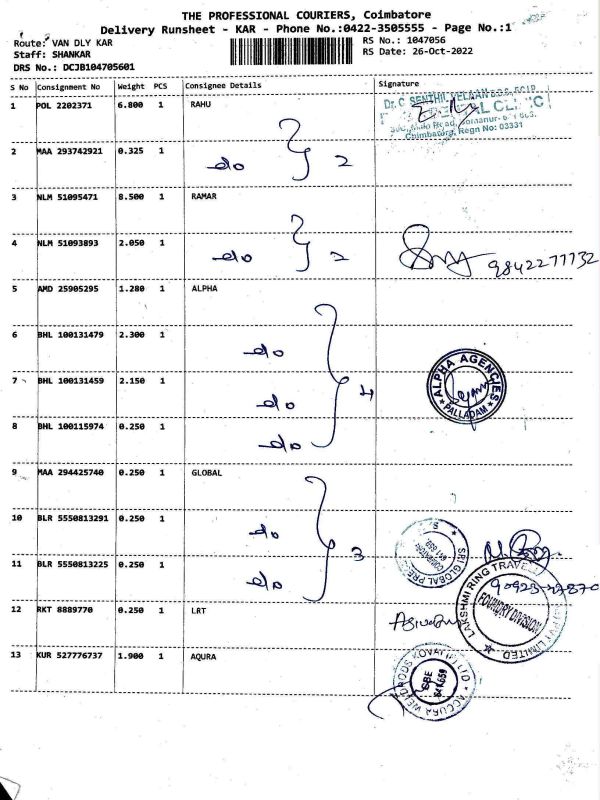 THE PROFESSIONAL COURIERS, Coimbatore
Delivery Runsheet - KAR - Phone No.:0422-3505555 - Page No.:1
Route: VAN DLY KAR
RS No.: 1047056
Staff: SHANKAR
RS Date: 26-Oct-2022
DRS No.: DCJB104705601
S No Consignment No Weight PCS Consignee Details Signature
1 POL 2202371 6.800 1 RAHU
Dr. C SENTHIL VELAAN
Coimbatore, Regn No: 03331
2 MAA 293742921 0.325 1 do } 2
3 NLM 51095471 8.500 1 RAMAR
4 NLM 51093893 2.050 1 do } 2
9842277132
5 AMD 25905295 1.280 1 ALPHA
6 BHL 100131479 2.300 1 do
7 BHL 100131459 2.150 1 do } 4
ALPHA AGENCIES
PALLADAM
8 BHL 100115974 0.250 1 do
9 MAA 294425740 0.250 1 GLOBAL
10 BLR 5550813291 0.250 1 do
11 BLR 5550813225 0.250 1 do } 3
SRI GLOBAL
COIMBATORE
641 659
LAKSHMI RING TRAVELLERS
LIMITED
FOUNDRY DIVISION
12 RKT 8889770 0.250 1 LRT
13 KUR 527776737 1.900 1 AQURA
ACCURA WELDRODS KOVAI (P) LTD
CBE
641 659